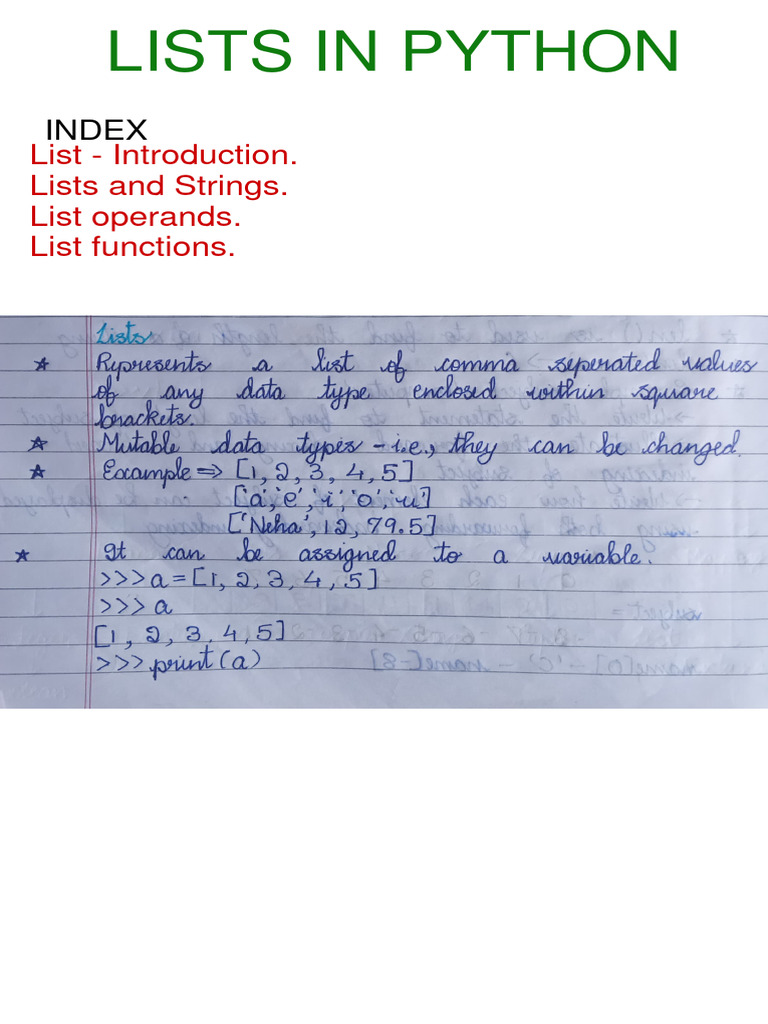 LISTS IN PYTHON
INDEX
List - Introduction.
Lists and Strings.
List operands.
List functions.
Lists
★ Represents a list of comma seperated values
of any data type enclosed within square
brackets.
★ Mutable data types - i.e., they can be changed.
★ Example ⇒ [1, 2, 3, 4, 5]
['a', 'e', 'i', 'o', 'u']
['Neha', 12, 79.5]
★ It can be assigned to a variable.
>>> a = [1, 2, 3, 4, 5]
>>> a
[1, 2, 3, 4, 5]
>>> print(a)